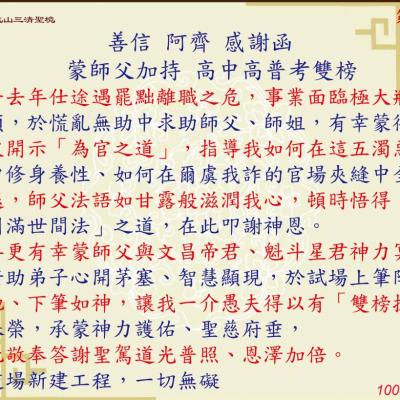 山三清聖境
善信 阿齊 感謝函
蒙師父加持 高中高普考雙榜
去年仕途遇罷黜離職之危，事業面臨極大
，於慌亂無助中求助師父、師姐，有幸蒙
開示「為官之道」，指導我如何在這五濁惡
修身養性、如何在爾虞我詐的官場夾縫中
，師父法語如甘露般滋潤我心，頓時悟得
滿世間法」之道，在此叩謝神恩。
更有幸蒙師父與文昌帝君、魁斗星君神力
助弟子心開茅塞、智慧顯現，於試場上筆
、下筆如神，讓我一介愚夫得以有「雙榜
榮，承蒙神力護佑、聖慈府垂，
敬奉答謝聖駕道光普照、恩澤加倍。
場新建工程，一切無礙
100